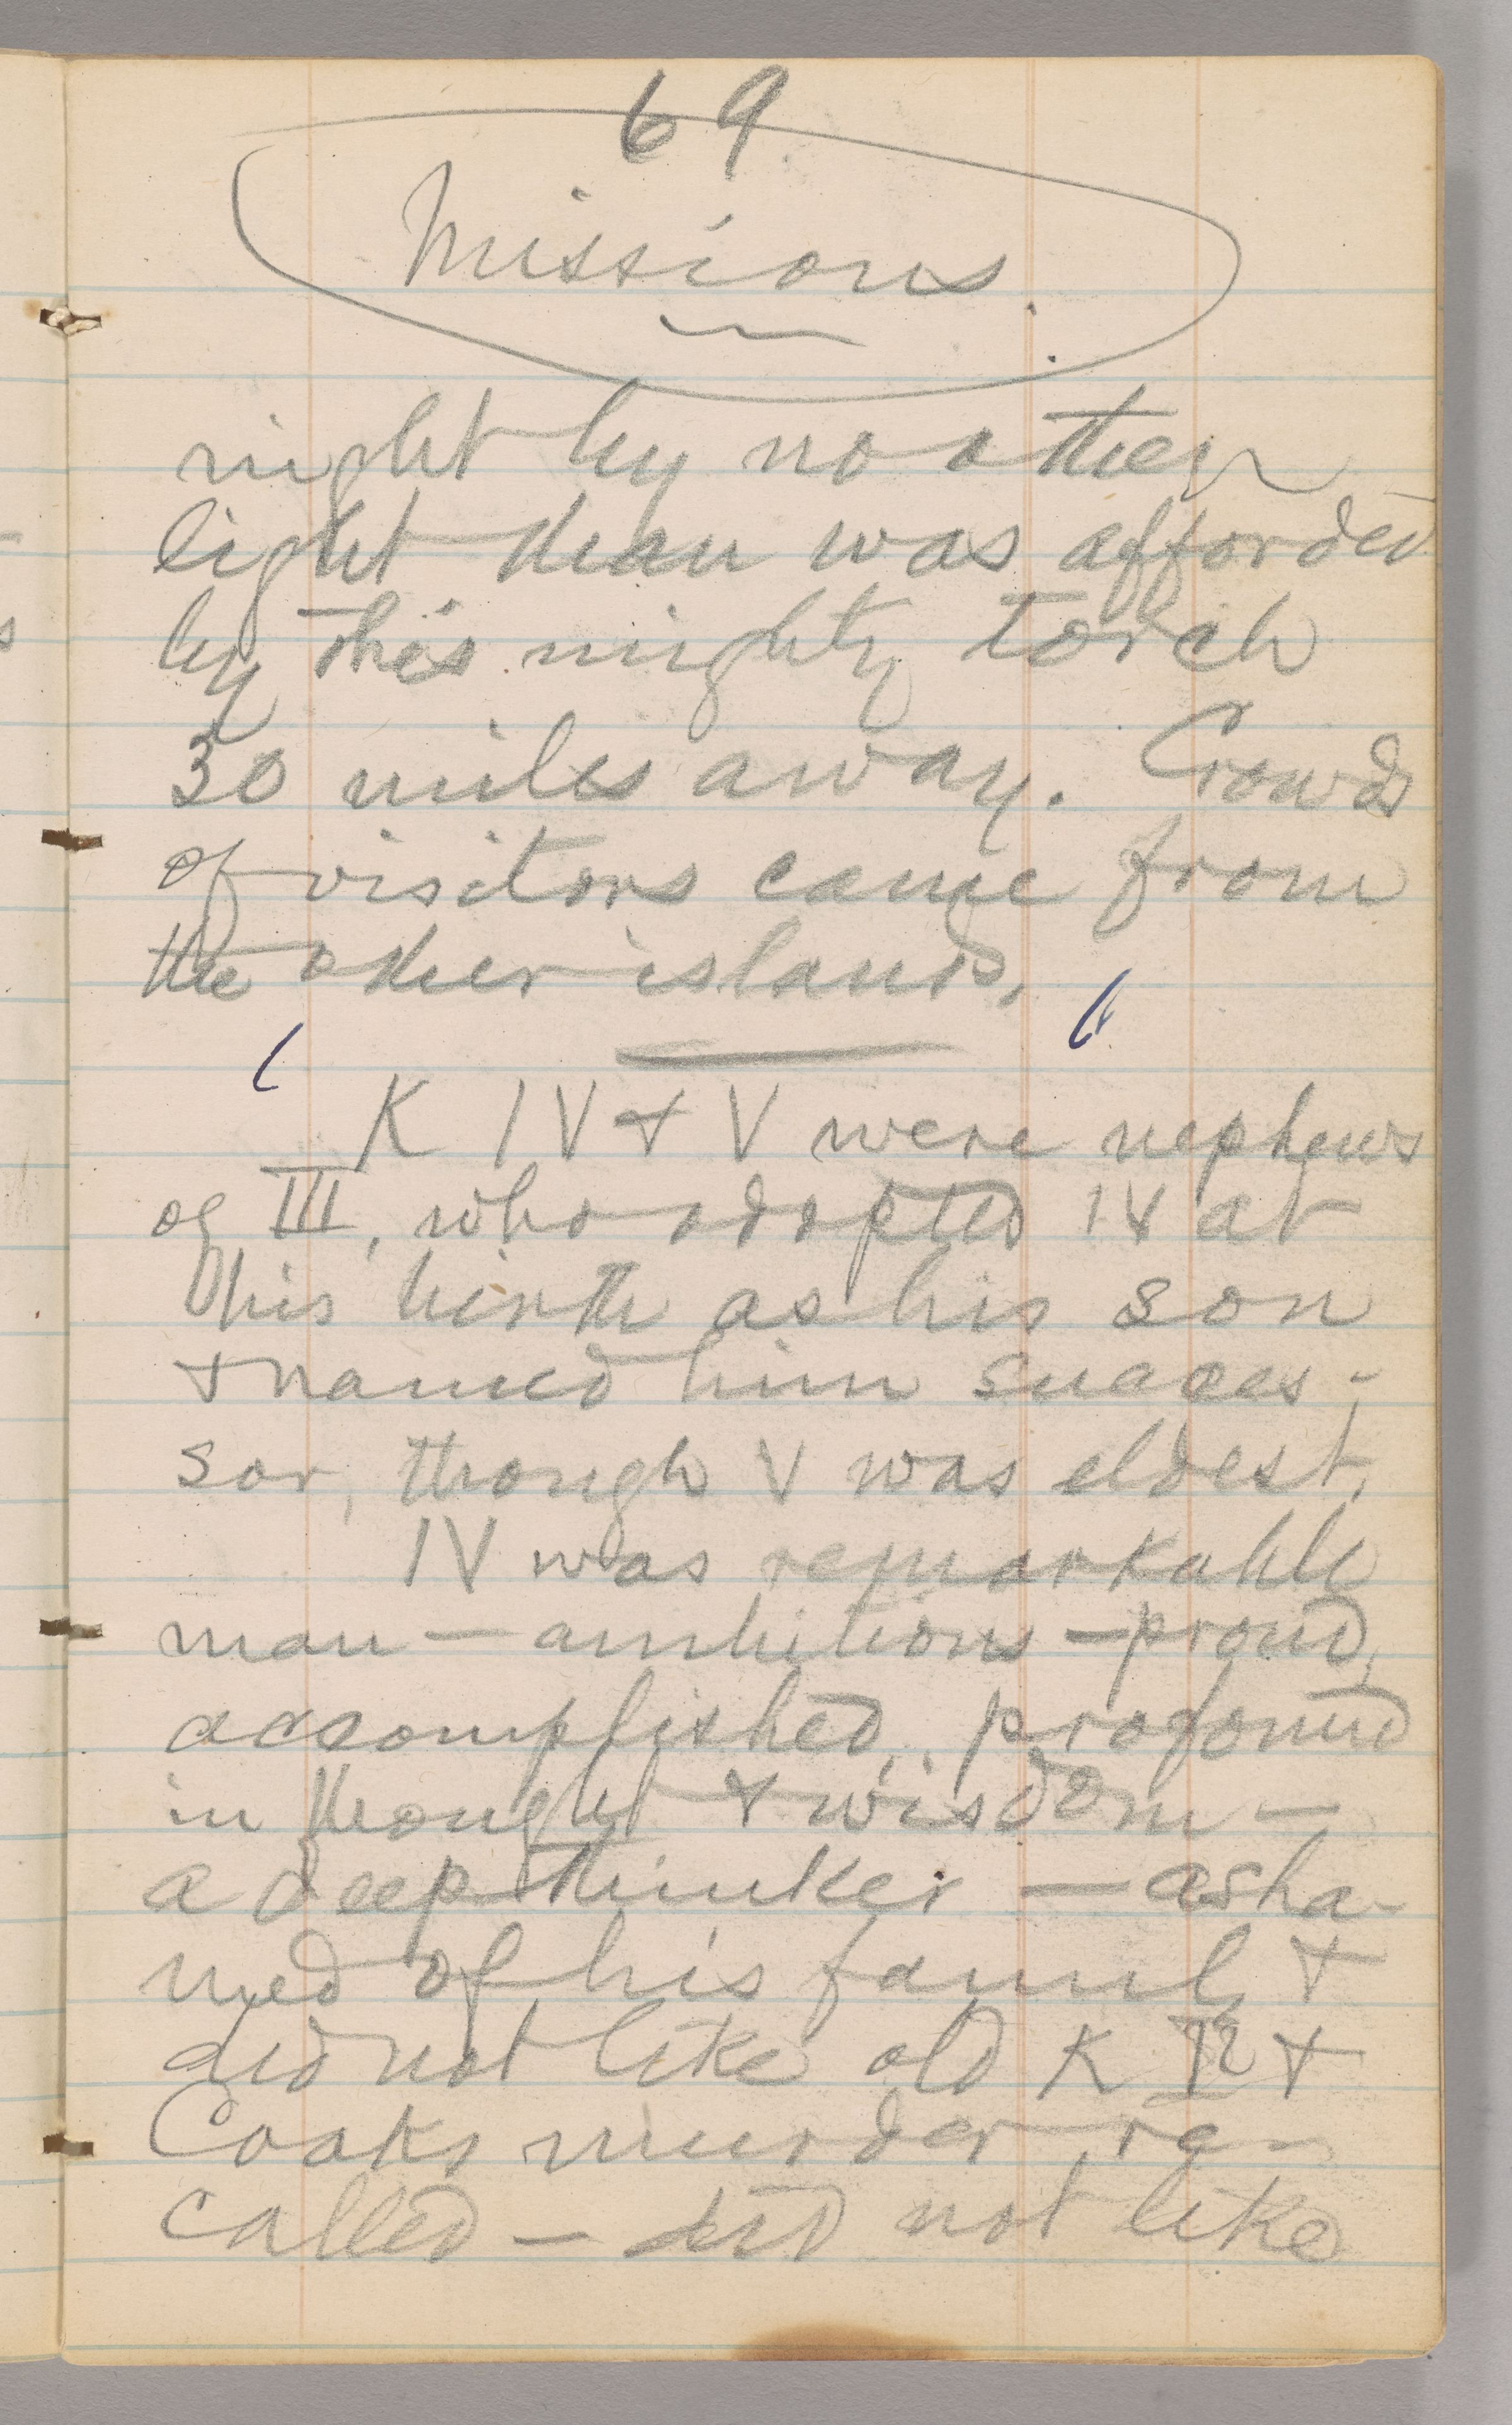 69
Missions.
night by no other
light than was afforded
by this mighty torch
30 miles away. Crowds
of visitors came from
the other islands.
K IV & V were nephews
of III, who adopted IV at
his birth as his son
& named him succes-
sor, though V was eldest.
IV was remarkable
man — ambitious — proud,
accomplished, profound
in thought & wisdom —
a deep thinker — asha-
med of his family &
did not like old K &
Cooks murder re-
called — did not like